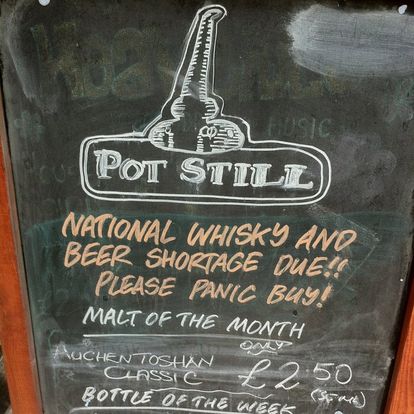 POT STILL
NATIONAL WHISKY AND
BEER SHORTAGE DUE!!
PLEASE PANIC BUY!
MALT OF THE MONTH
ONLY
AUCHENTOSHAN
CLASSIC £2.50
BOTTLE OF THE WEEK